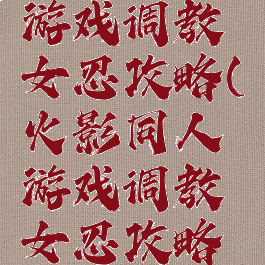 游戏调教
女忍攻略(
火影同人
游戏调教
女忍攻略